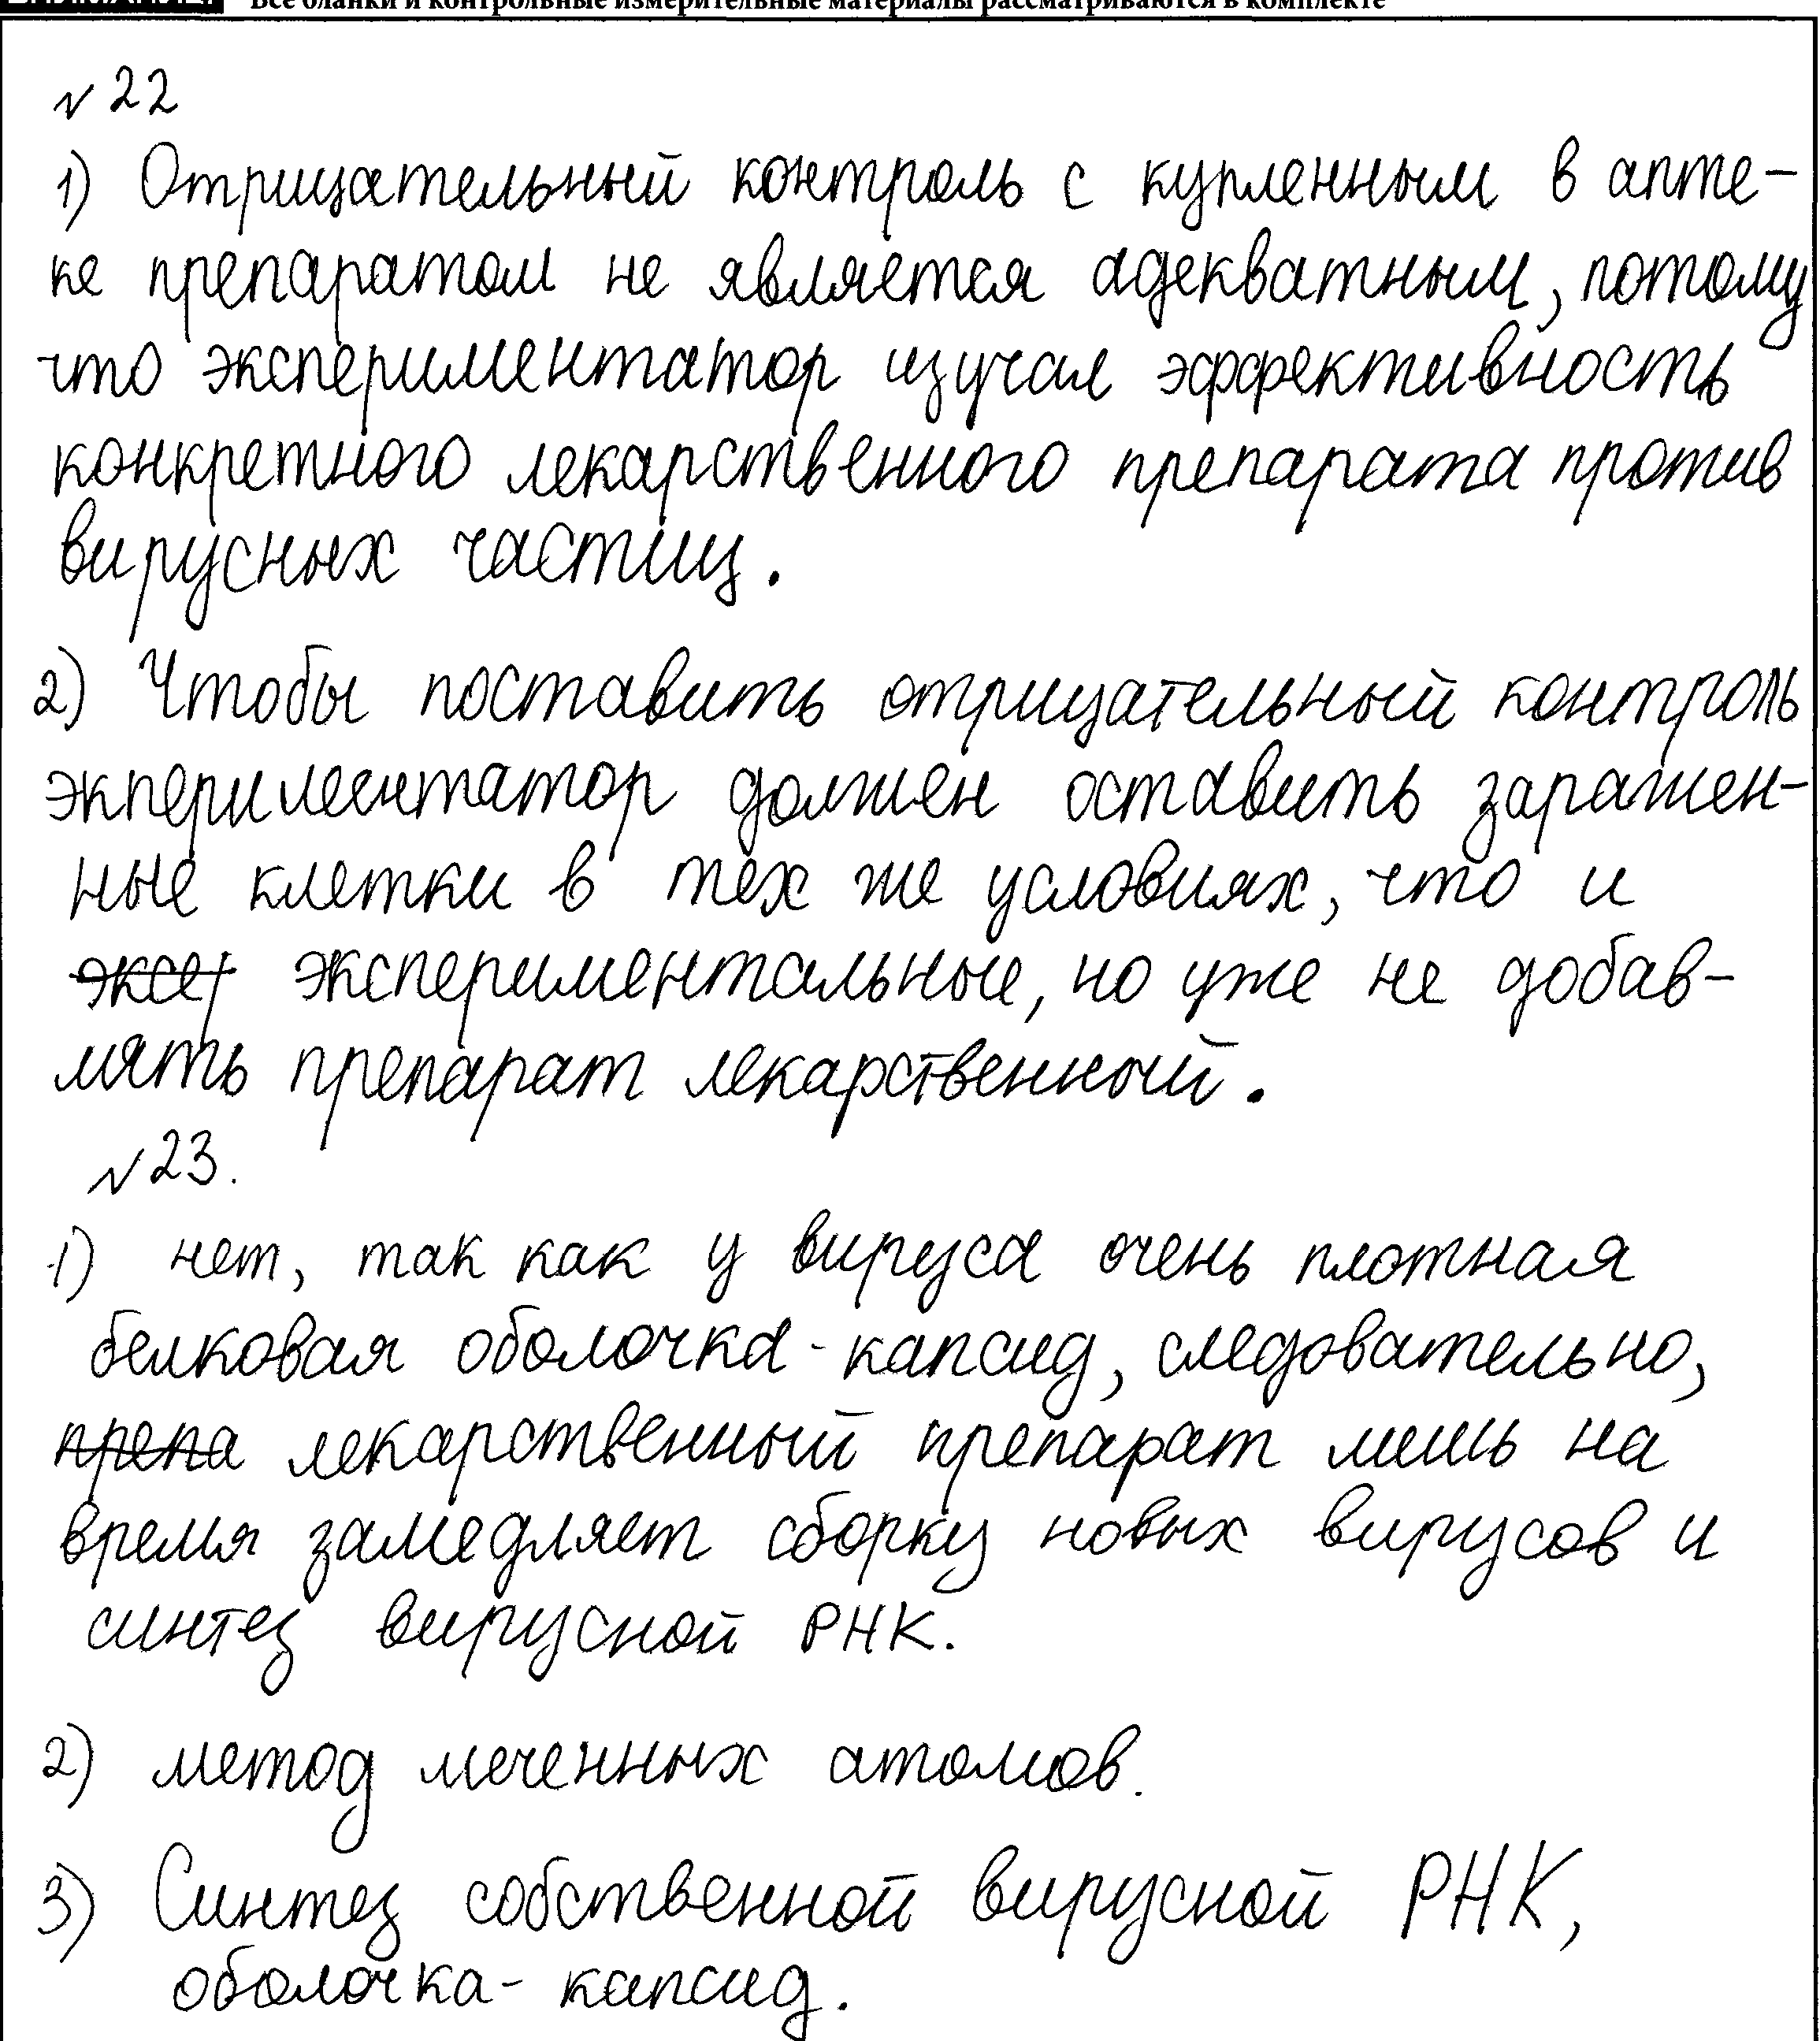 Все бланки и контрольные измерительные материалы рассматриваются в комплекте
№ 22
1) Отрицательный контроль с купленным в апте-
ке препаратом не является адекватным, потому
что экспериментатор изучал эффективность
конкретного лекарственного препарата против
вирусных частиц.
2) Чтобы поставить отрицательный контроль
экпериментатор должен оставить заражен-
ные клетки в тех же условиях, что и
эксер экспериментальные, но уже не добав-
лять препарат лекарственный.
№ 23.
1) нет, так как у вируса очень плотная
белковая оболочка - капсид, следовательно,
препа лекарственный препарат лишь на
время замедляет сборку новых вирусов и
синтез вирусной РНК.
2) метод меченных атомов.
3) Синтез собственной вирусной РНК,
оболочка - капсид.